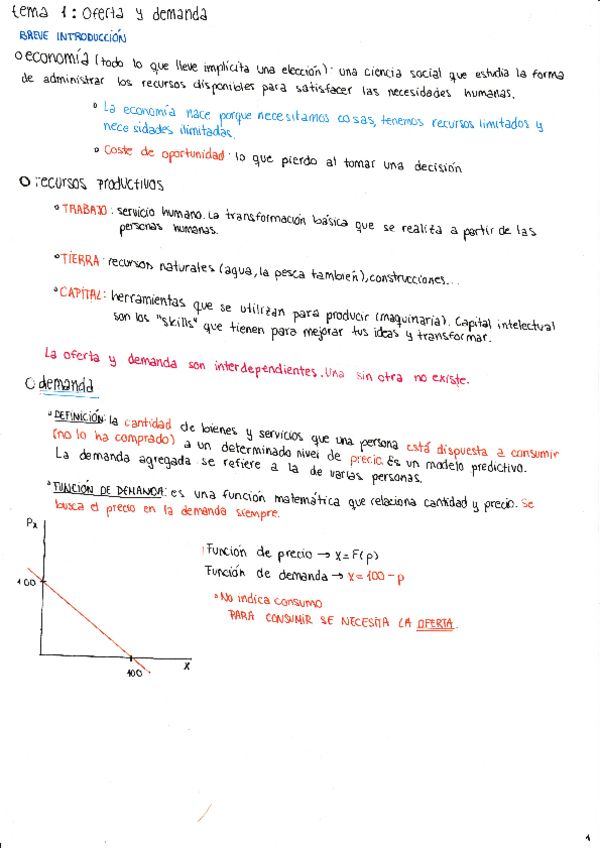 tema 1: Oferta y demanda
BREVE INTRODUCCIÓN
o economía (todo lo que lleve implícita una elección): una ciencia social que estudia la forma
de administrar los recursos disponibles para satisfacer las necesidades humanas.
° La economía nace porque necesitamos cosas, tenemos recursos limitados y
necesidades ilimitadas.
° Coste de oportunidad: lo que pierdo al tomar una decisión
O recursos productivos
° TRABAJO: servicio humano. La transformación básica que se realiza a partir de las
personas humanas.
° TIERRA: recursos naturales (agua, la pesca también), construcciones...
° CAPITAL: herramientas que se utilizan para producir (maquinaria). Capital intelectual
son los "skills" que tienen para mejorar tus ideas y transformar.
La oferta y demanda son interdependientes. Una sin otra no existe.
O demanda
° DEFINICIÓN: la cantidad de bienes y servicios que una persona está dispuesta a consumir
(no lo ha comprado) a un determinado nivel de precio. Es un modelo predictivo.
La demanda agregada se refiere a la de varias personas.
° FUNCIÓN DE DEMANDA: es una función matemática que relaciona cantidad y precio. Se
busca el precio en la demanda siempre.
Px
100
100
X
Función de precio → x = F(p)
Función de demanda → x = 100 - p
° No indica consumo
PARA CONSUMIR SE NECESITA LA OFERTA.
1